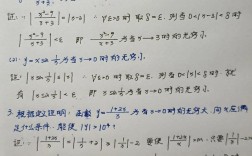 证: ∵ |x²-9/x+3| = |x-3| ∴ ∀ε>0 时 取 δ=ε, 则当 0<|x-3|<δ 时
|x²-9/x+3| < ε 即 x²-9/x+3 为当 x→3 时的无穷小.
(2) y = x sin 1/x 为当 x→0 时的无穷小.
证: |x sin 1/x| ≤ |x| ∴ ∀ε>0 时 取 δ=ε, 则当 0<|x|<δ 时, 就
有 |x sin 1/x| ≤ |x| < ε 即 x sin 1/x 为当 x→0 时的无穷小.
3. 根据定义证明: 函数 y = 1+2x/x 为当 x→0 时的无穷大. 问 x 应满
足什么条件, 能使 |y|>10⁴?
证: ∵ |1+2x/x| = |1/x + 2| ≥ |1/x| - 2 要使 |1+2x/x| > M, 只需 |1/x| - 2 >